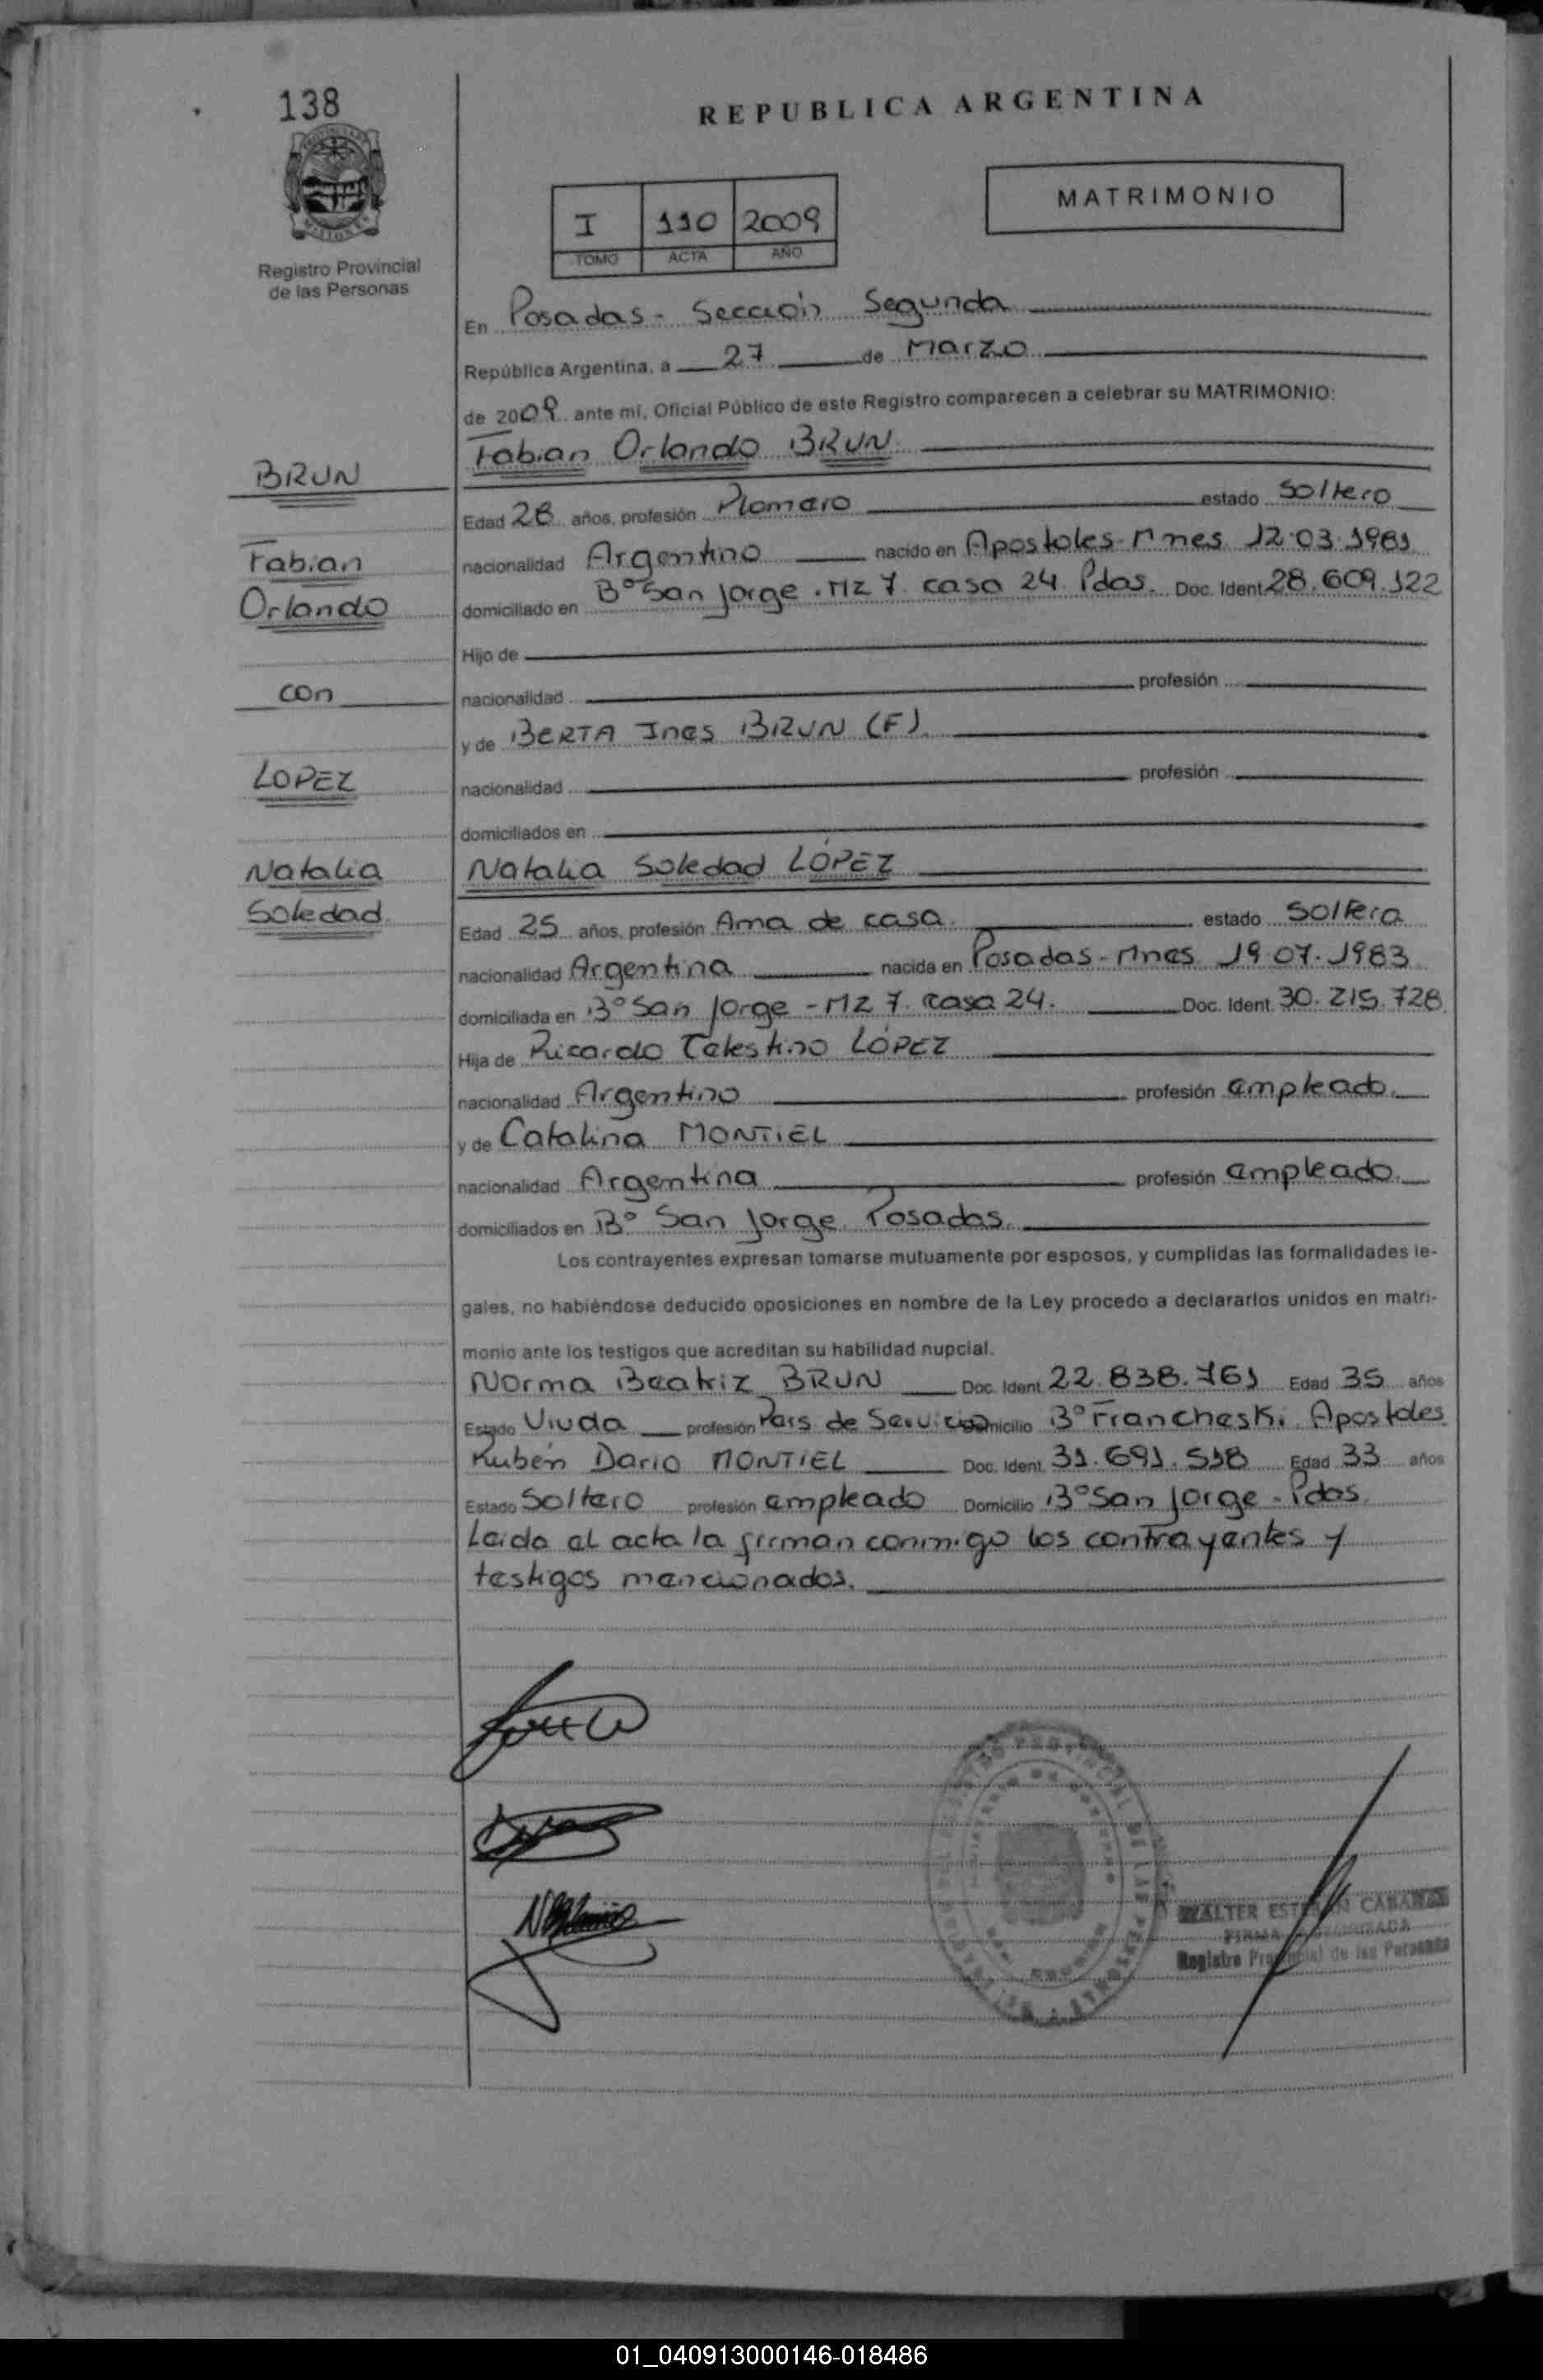 138
REPUBLICA ARGENTINA
MATRIMONIO
I 110 2009
TOMO ACTA AÑO
Registro Provincial
de las Personas
En Posadas - Sección Segunda
República Argentina, a 27 de Marzo
de 2009 ante mí, Oficial Público de este Registro comparecen a celebrar su MATRIMONIO:
Fabian Orlando BRUN
BRUN
Edad 28 años, profesión Plomero estado Soltero
Fabian
nacionalidad Argentino nacido en Apostoles-Mnes 12.03.1981
Orlando
domiciliado en B° San Jorge. Mz 7. casa 24. Pdas. Doc. Ident. 28.609.122
Hijo de
con
nacionalidad profesión
y de BERTA Ines BRUN (F).
LOPEZ
nacionalidad profesión
domiciliados en
Natalia
Natalia Soledad LÓPEZ
Soledad
Edad 25 años, profesión Ama de casa. estado Soltera
nacionalidad Argentina nacida en Posadas-Mnes 19.07.1983
domiciliada en B° San Jorge - Mz 7. casa 24. Doc. Ident. 30.215.728
Hija de Ricardo Celestino LÓPEZ
nacionalidad Argentino profesión empleado.
y de Catalina MONTIEL
nacionalidad Argentina profesión empleado.
domiciliados en B° San Jorge. Posadas.
Los contrayentes expresan tomarse mutuamente por esposos, y cumplidas las formalidades le-
gales, no habiéndose deducido oposiciones en nombre de la Ley procedo a declararlos unidos en matri-
monio ante los testigos que acreditan su habilidad nupcial.
Norma Beatriz BRUN Doc. Ident. 22.838.761 Edad 35 años
Estado Viuda profesión Pers de Servicio Domicilio B° Francheski. Apostoles.
Rubén Dario MONTIEL Doc. Ident. 31.691.518 Edad 33 años
Estado Soltero profesión empleado Domicilio B° San Jorge - Pdas.
Leida el acta la firman conmigo los contrayentes y
testigos mencionados.
WALTER ESTEBAN
FIRMA
Registro Provincial de las Personas
01_040913000146-018486